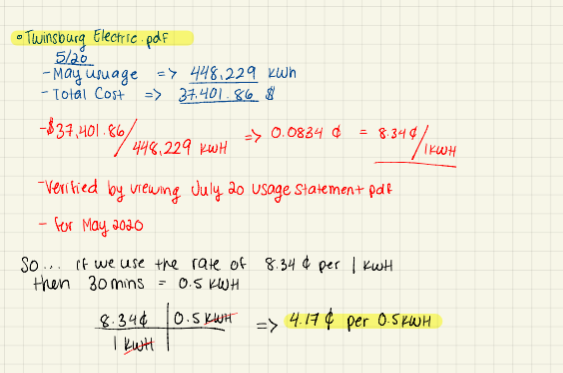 • Twinsburg Electric.pdf
5/20
- May usuage => 448,229 kWh
- Total Cost => 37,401.86 $
-$37,401.86/448,229 KWH => 0.0834 ¢ = 8.34¢/1KWH
- Verified by viewing July 20 usage statement pdf
- for May 2020
So... if we use the rate of 8.34 ¢ per 1 KWH
then 30 mins = 0.5 KWH
8.34¢ | 0.5 KWH => 4.17 ¢ per 0.5KWH
1 KWH